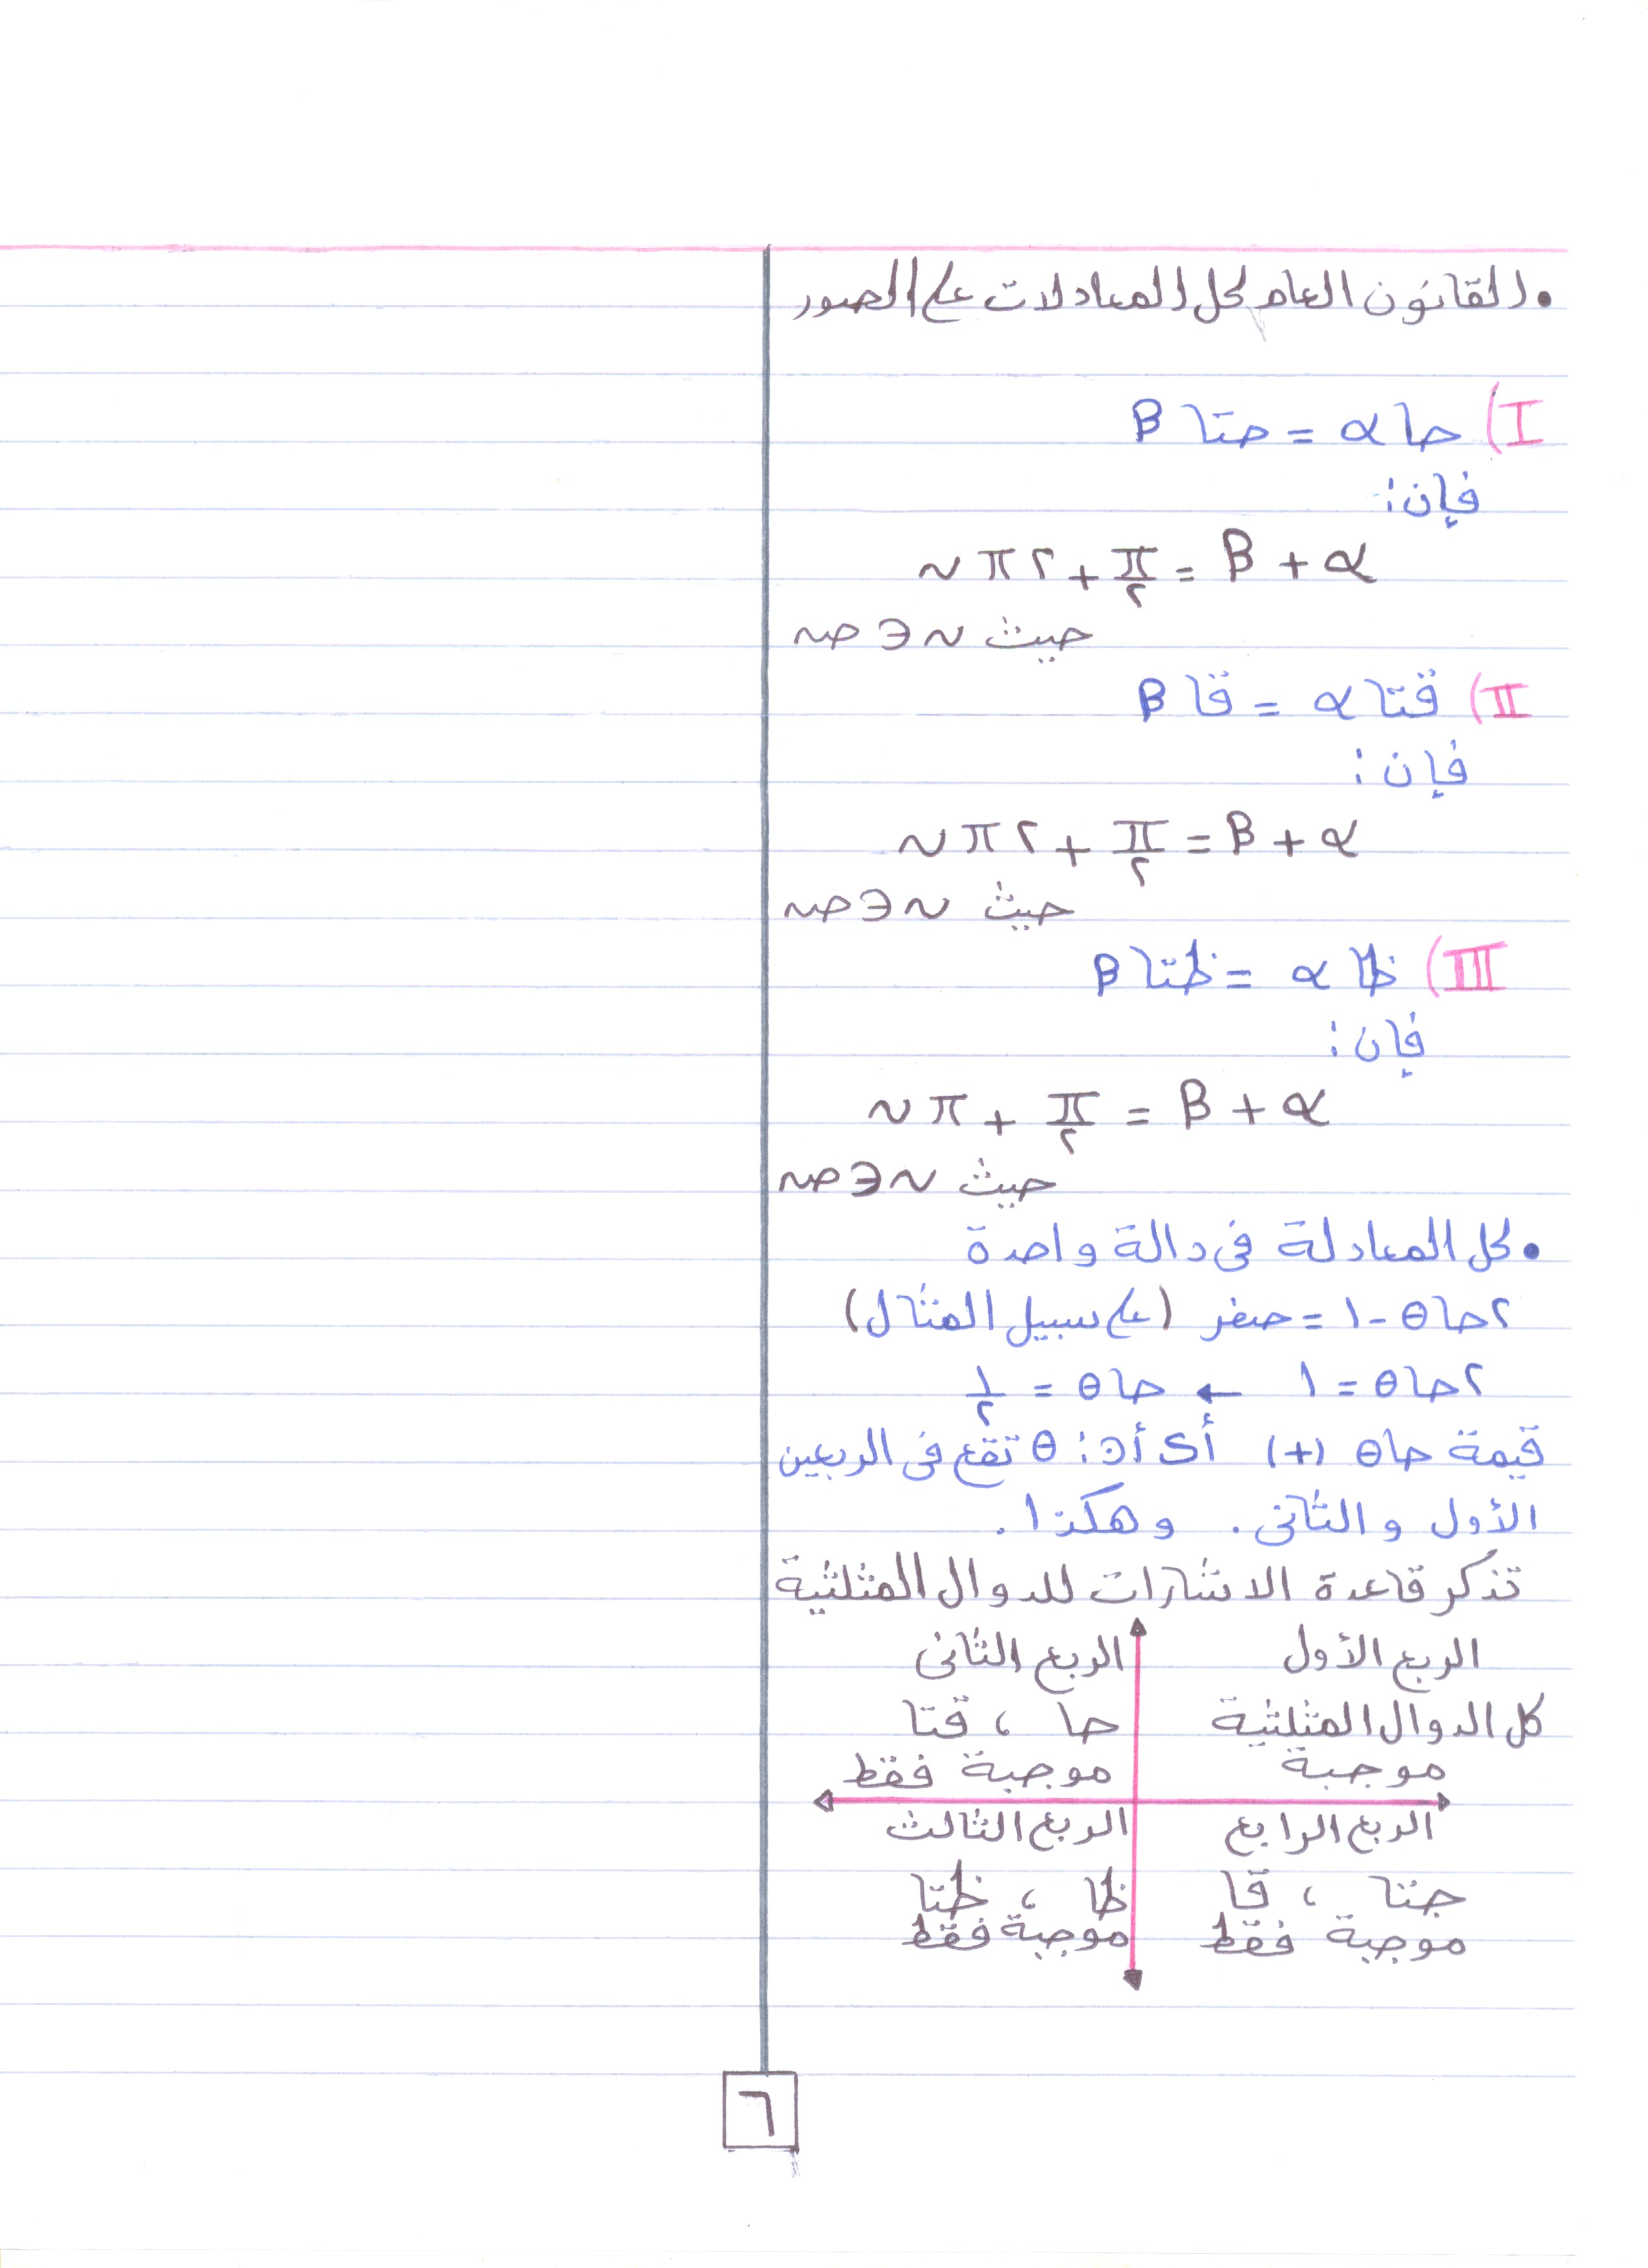 • القانون العام لحل المعادلات على الصور
I) جا α = جتا β
فإن:
α + β = π/٢ + ٢ π ن
حيث ن ∈ ص
II) قتا α = قا β
فإن:
α + β = π/٢ + ٢ π ن
حيث ن ∈ ص
III) ظا α = ظتا β
فإن:
α + β = π/٢ + π ن
حيث ن ∈ ص
• لحل المعادلة فى دالة واحدة
٢جا θ - ١ = صفر (على سبيل المثال)
٢جا θ = ١ ← جا θ = ١/٢
قيمة جا θ (+) أى أن: θ تقع فى الربعين
الأول والثانى. وهكذا.
تذكر قاعدة الاشارات للدوال المثلثية
الربع الأول
كل الدوال المثلثية
موجبة
الربع الثانى
جا ، قتا
موجبة فقط
الربع الثالث
ظا ، ظتا
موجبة فقط
الربع الرابع
جتا ، قا
موجبة فقط
٦